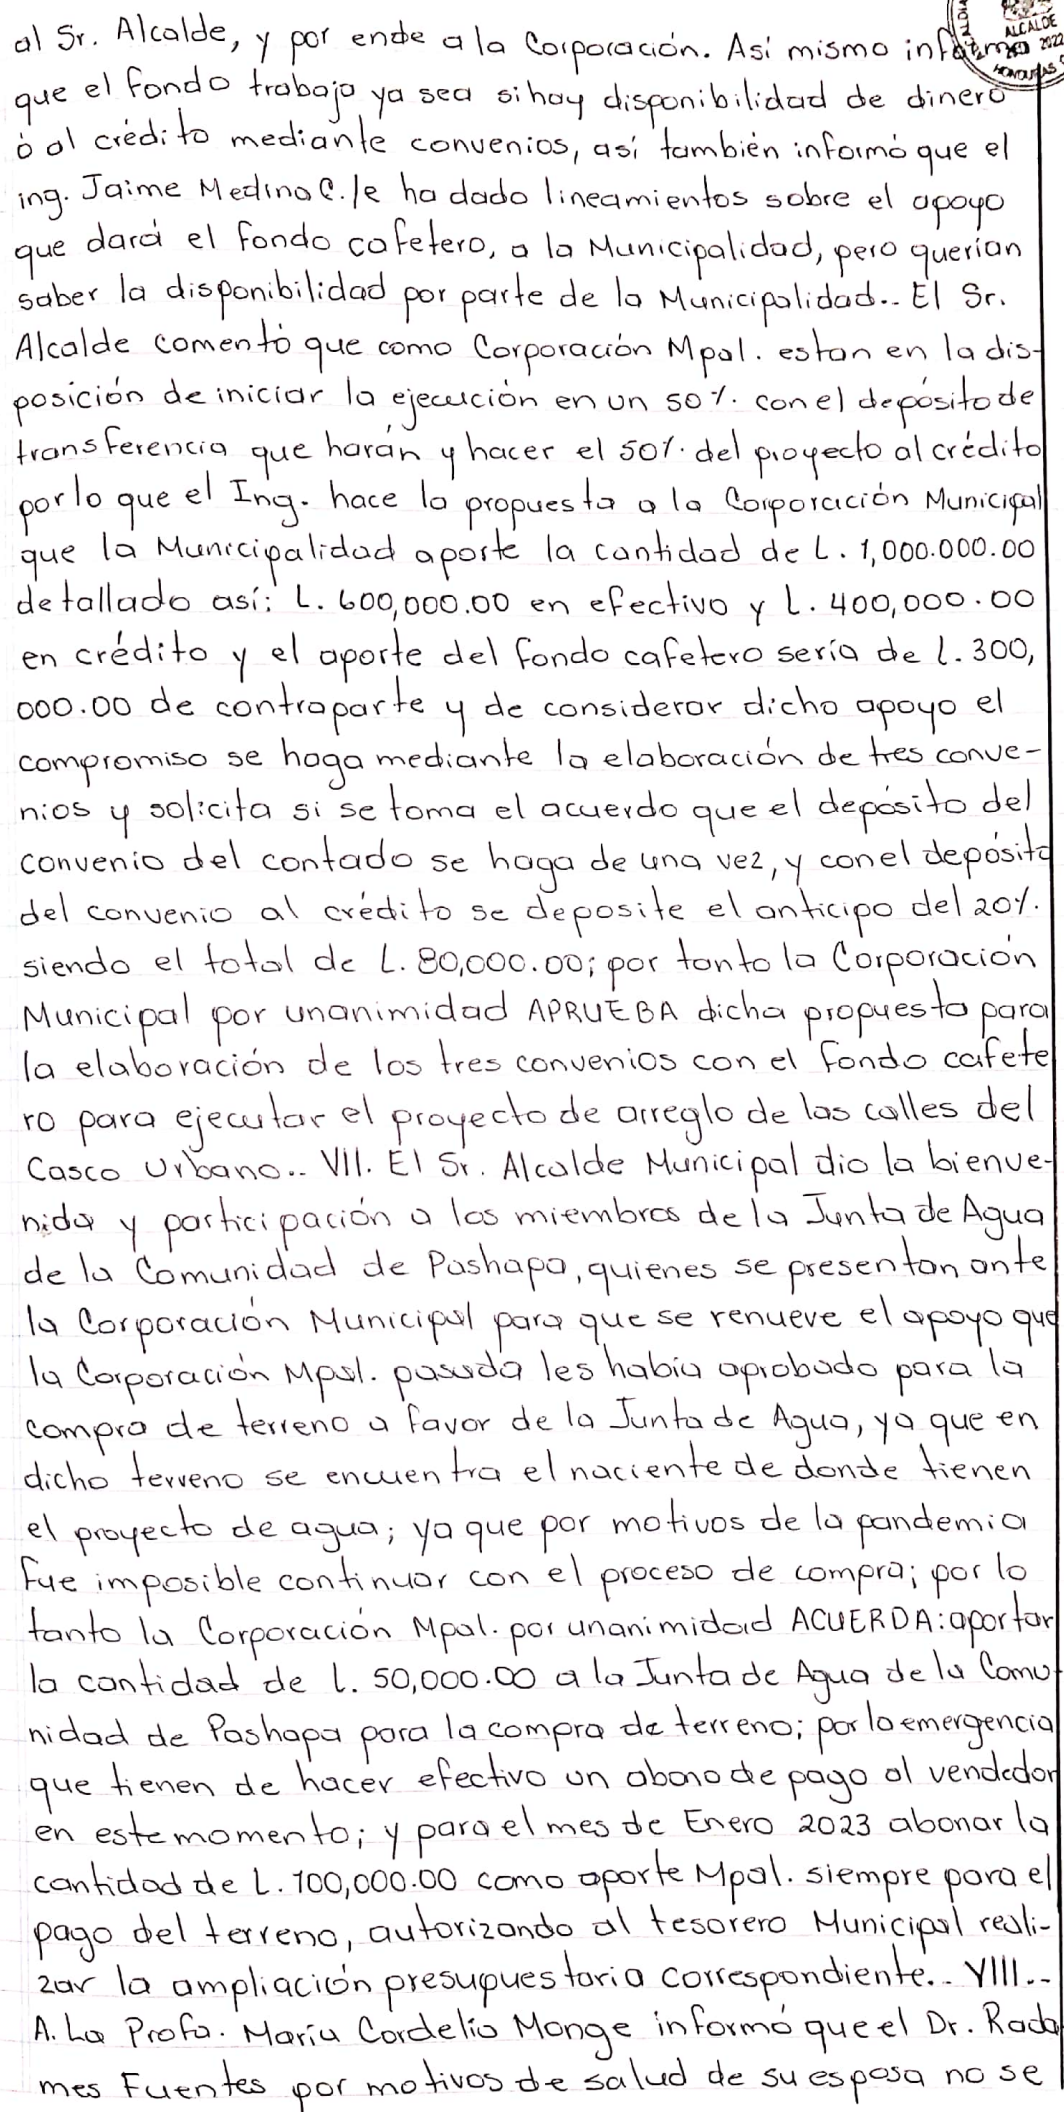 al Sr. Alcalde, y por ende a la Corporación. Así mismo informó
que el fondo trabaja ya sea si hay disponibilidad de dinero
ó al crédito mediante convenios, así también informó que el
ing. Jaime Medina C. le ha dado lineamientos sobre el apoyo
que dará el fondo cafetero, a la Municipalidad, pero querian
saber la disponibilidad por parte de la Municipalidad.. El Sr.
Alcalde comentó que como Corporación Mpal. estan en la dis-
posición de iniciar la ejecución en un 50%. con el depósito de
transferencia que harán y hacer el 50%. del proyecto al crédito
por lo que el Ing. hace la propuesta a la Corporación Municipal
que la Municipalidad aporte la cantidad de L. 1,000.000.00
detallado así: L. 600,000.00 en efectivo y L. 400,000.00
en crédito y el aporte del fondo cafetero sería de L. 300,
000.00 de contraparte y de considerar dicho apoyo el
compromiso se haga mediante la elaboración de tres conve-
nios y solicita si se toma el acuerdo que el depósito del
convenio del contado se haga de una vez, y con el depósito
del convenio al crédito se deposite el anticipo del 20%.
siendo el total de L. 80,000.00; por tanto la Corporación
Municipal por unanimidad APRUEBA dicha propuesta para
la elaboración de los tres convenios con el fondo cafete
ro para ejecutar el proyecto de arreglo de las calles del
Casco Urbano.. VII. El Sr. Alcalde Municipal dio la bienve-
nida y participación a los miembros de la Junta de Agua
de la Comunidad de Pashapa, quienes se presentan ante
la Corporación Municipal para que se renueve el apoyo que
la Corporación Mpal. pasada les había aprobado para la
compra de terreno a favor de la Junta de Agua, ya que en
dicho terreno se encuentra el naciente de donde tienen
el proyecto de agua; ya que por motivos de la pandemia
fue imposible continuar con el proceso de compra; por lo
tanto la Corporación Mpal. por unanimidad ACUERDA: aportar
la cantidad de L. 50,000.00 a la Junta de Agua de la Comu
nidad de Pashapa para la compra de terreno; por la emergencia
que tienen de hacer efectivo un abono de pago al vendedor
en este momento; y para el mes de Enero 2023 abonar la
cantidad de L. 100,000.00 como aporte Mpal. siempre para el
pago del terreno, autorizando al tesorero Municipal reali-
zar la ampliación presupuestaria correspondiente.. VIII..
A. La Profa. Maria Cordelia Monge informó que el Dr. Rada
mes Fuentes por motivos de salud de su esposa no se
ALCALDE
2022
HONDURAS